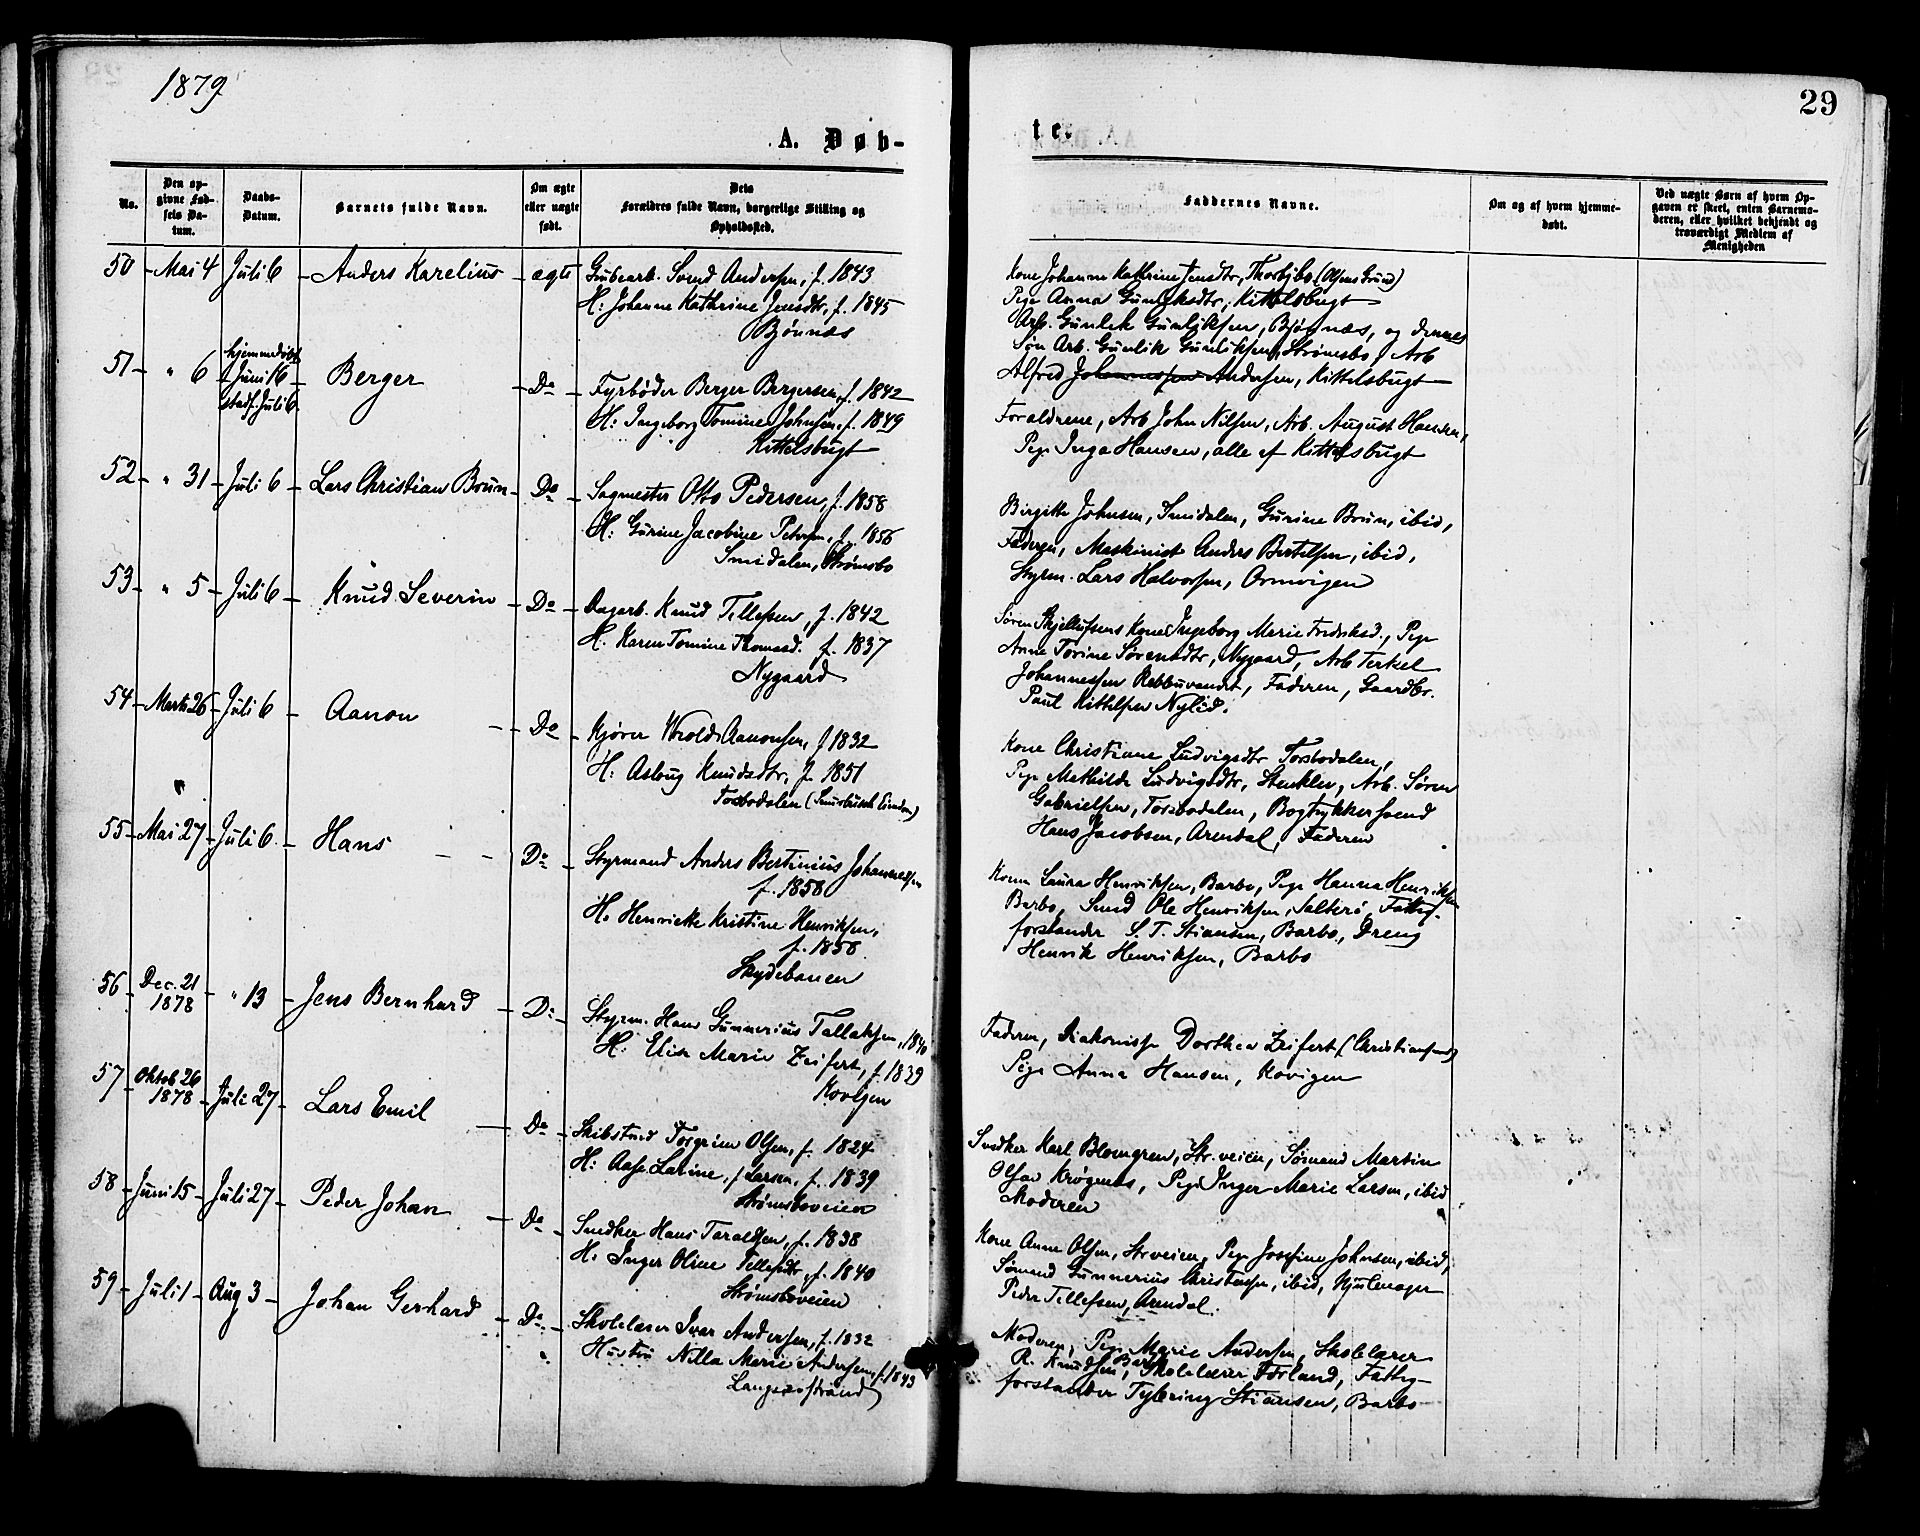 1879
29
A. Døb-
te.
No.
Den op-
givne Fød-
sels Da-
tum.
Daabs-
Datum.
Barnets fulde Navn.
Om ægte
eller uægte
født.
Dets
Forældres fulde Navn, borgerlige Stilling og
Opholdssted.
Faddernes Navne.
Om og af hvem hjemme-
døbt.
Ved uægte Børn af hvem Op-
gaven er skeet, enten Barnemo-
deren, eller hvilket bekjendt og
troværdigt Medlem af
Menigheden
50 Mai 4 Juli 6 Anders Karelius ægte
Grubearb. Svend Andersen, f. 1843
H: Johanne Kathrine Jensdtr, f. 1845
Bjønnæs
Kone Johanne Kathrine Jensdtr, Thorbjbo (Olsens Grund)
Pige Anna Gunliksdtr, Kittelsbugt
Arb. Gunlek Gunliksen, Bjønnæs, og dennes
Søn Arb. Gunlik Gunliksen, Strømsbo, Arb
Alfred Johannessen Andersen, Kittelsbugt
51 " 6 hjemmedøbt
Juni 16
stadf. Juli 6 Berger Do
Fyrbøder Berger Bergersen, f. 1842
H: Ingeborg Tomine Johnsen, f. 1849
Kittelsbugt
Forældrene, Arb John Nilsen, Arb. August Hansen,
Pige Inga Hansen, alle af Kittelsbugt
52 " 31 Juli 6 Lars Christian Brun Do
Sagmester Otto Pedersen, f. 1858
H: Gurine Jacobine Petersen, f. 1856
Smidalen, Strømsbo
Birgitte Johnsen, Smidalen, Gurine Brun, ibid,
Faderen, Maskinist Anders Bertelsen, ibid,
Styrm. Lars Halvorsen, Ormvigen
53 " 5 Juli 6 Knud Severin Do
Dagarb. Knud Tellefsen, f. 1842
H. Karen Tomine Thomasd. f. 1837
Nygaard
Søren Kjelulfsens Kone Ingeborg Marie Fredriksd., Pige
Anne Torine Sørensdtr, Nygaard, Arb Terkel
Johannessen Rebbuvandet, Faderen, Gaardbr.
Paul Kittelsen Nylid.
54 Marts 26 Juli 6 Aanon Do
Kjører Wrold Aanonsen, f 1832
H: Aslaug Knudsdtr, f. 1851
Torsbodalen
Kone Christiane Ludvigsdtr Torsbodalen,
Pige Mathilde Ludvigsdtr, Stenklev, Arb. Søren
Gabrielsen, Torsbodalen, Bogtrykkersvend
Hans Jacobsen, Arendal, Faderen
55 Mai 27 Juli 6 Hans Do
Styrmand Anders Bertinius Johannesen
f. 1858
H. Henriette Kristine Henriksen,
f. 1858
Skydebanen
Kone Laura Henriksen, Barbo, Pige Hanna Henriksen
Barbo, Smed Ole Henriksen, Salterø, Fattig-
forstander S. T. Stiansen, Barbo, Dreng
Henrik Henriksen, Barbo
56 Dec. 21
1878 " 13 Jens Bernhard Do
Styrm. Hans Gunnerius Tallaksen, 1840
H: Elise Marie Zeifert, f. 1839
Kovigen
Faderen, Diakonisse Dorthea Zeifert (Christiansand)
Pige Anna Hansen, Kovigen
57 Oktob 26
1878 Juli 27 Lars Emil Do
Skibstmd Torgrim Olsen, f. 1824
H: Aase Larine, f Larsen, f. 1839
Strømsboveien
Snedker Karl Blomgren, Str. veien, Sømand Martin
Olsen Krøgenes, Pige Inger Marie Larsen, ibid
Moderen
58 Juni 15 Juli 27 Peder Johan Do
Snedker Hans Taraldsen, f. 1838
H: Inger Oline Tellefsdtr, f. 1840
Strømsboveien
Kone Anne Olsen, Strveien, Pige Josefine Johnsen, ibid,
Sømand Gunnerius Christensen, ibid, Hjulmager
Peder Tellefsen, Arendal.
59 Juli 1 Aug 3 Johan Gerhard Do
Skolelærer Ivar Andersen, f. 1832
Hustru Nilla Marie Andersen, f. 1843
Langsæstrand
Moderen, Pige Marie Andersen, Skolelærer
R. Knudsen, Barbo, Skolelærer Førland, Fattig-
forstander Tybring Stiansen, Barbo